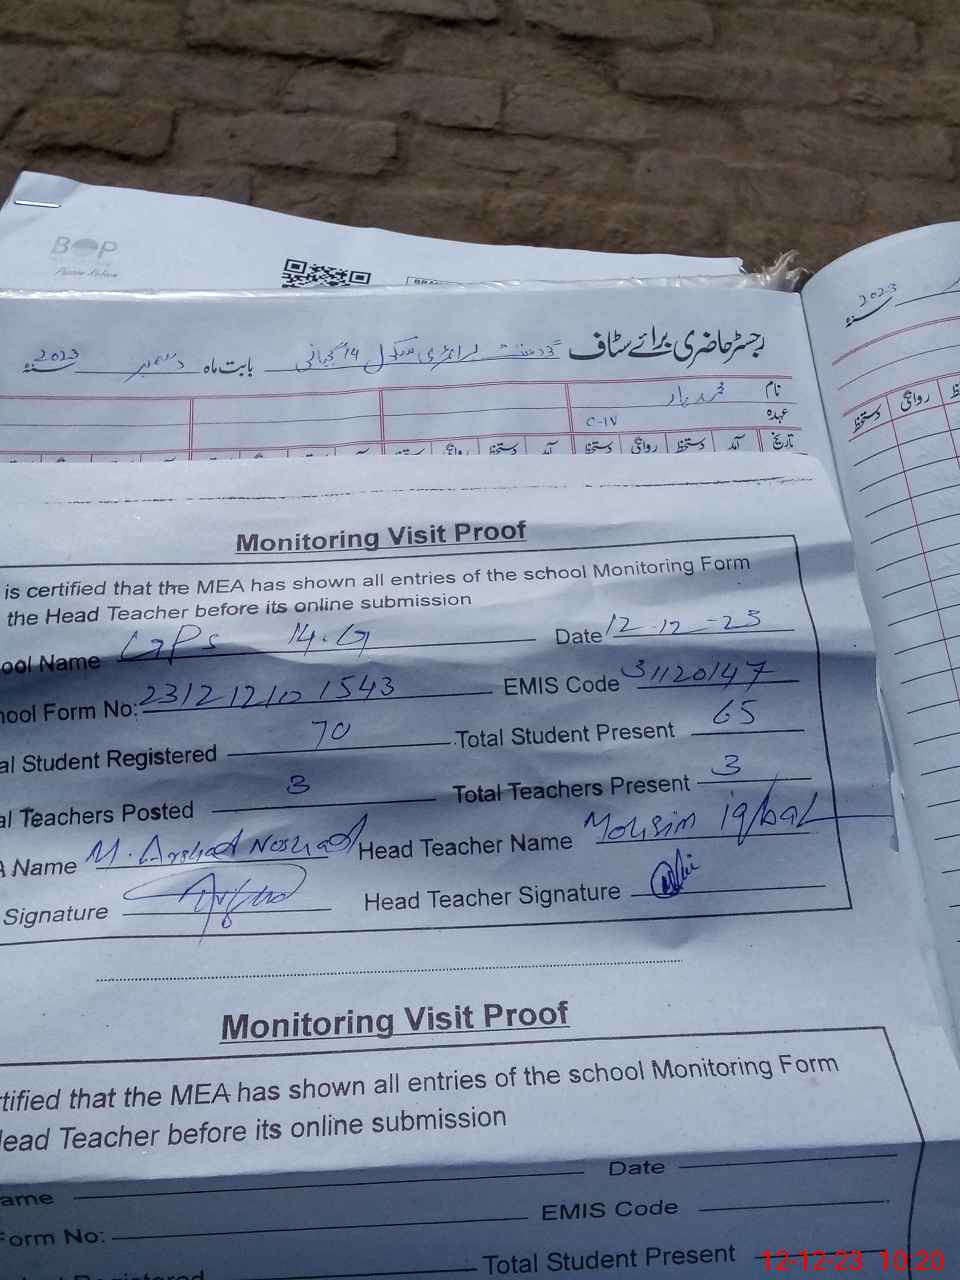 BOP
رجسٹر حاضری برائے سٹاف گورنمنٹ پرائمری سکول 14 گجیانی بابت ماہ دسمبر 2023
2023
نام محمد یار
عہدہ C-IV
تاریخ آمد دستخط روانگی دستخط آمد دستخط روانگی دستخط
روانگی دستخط
Monitoring Visit Proof
is certified that the MEA has shown all entries of the school Monitoring Form
the Head Teacher before its online submission
ool Name GPS 14.G Date 12-12-23
hool Form No: 23121210 1543 EMIS Code 31120147
al Student Registered 70 Total Student Present 65
al Teachers Posted 3 Total Teachers Present 3
A Name M. Arshad Noshad Head Teacher Name Mohsim iqbal
Signature Head Teacher Signature
Monitoring Visit Proof
rtified that the MEA has shown all entries of the school Monitoring Form
Head Teacher before its online submission
ame Date
Form No: EMIS Code
Registered Total Student Present
12-12-23 10:20